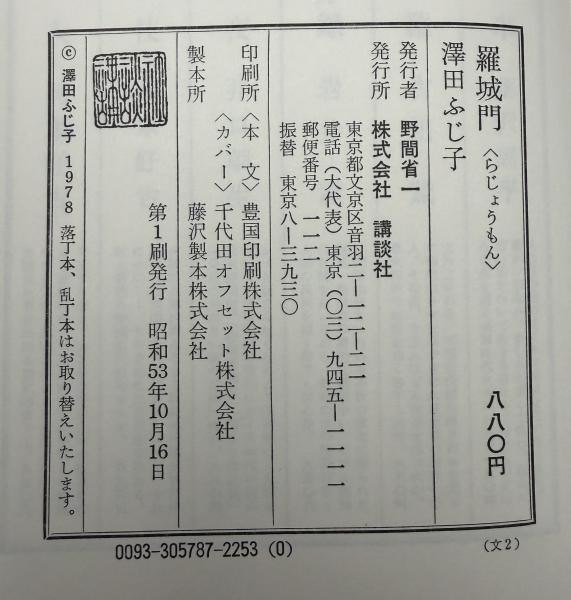 羅城門〈らじょうもん〉 八八〇円
澤田ふじ子
発行者 野間省一
発行所 株式会社 講談社
東京都文京区音羽二―一二―二一
電話(大代表)東京(〇三)九四五―一一一一
郵便番号 一一二
振替 東京八―三九三〇
印刷所〈本 文〉豊国印刷株式会社
〈カバー〉千代田オフセット株式会社
製本所 藤沢製本株式会社
第1刷発行 昭和53年10月16日
© 澤田ふじ子 1978 落丁本、乱丁本はお取り替えいたします。
0093-305787-2253 (0)
(文2)